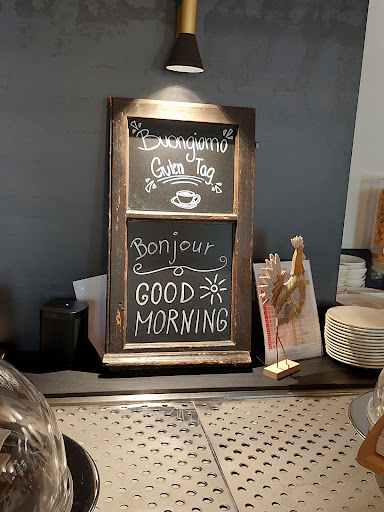 Buongiorno
Guten Tag
Bonjour
GOOD
MORNING